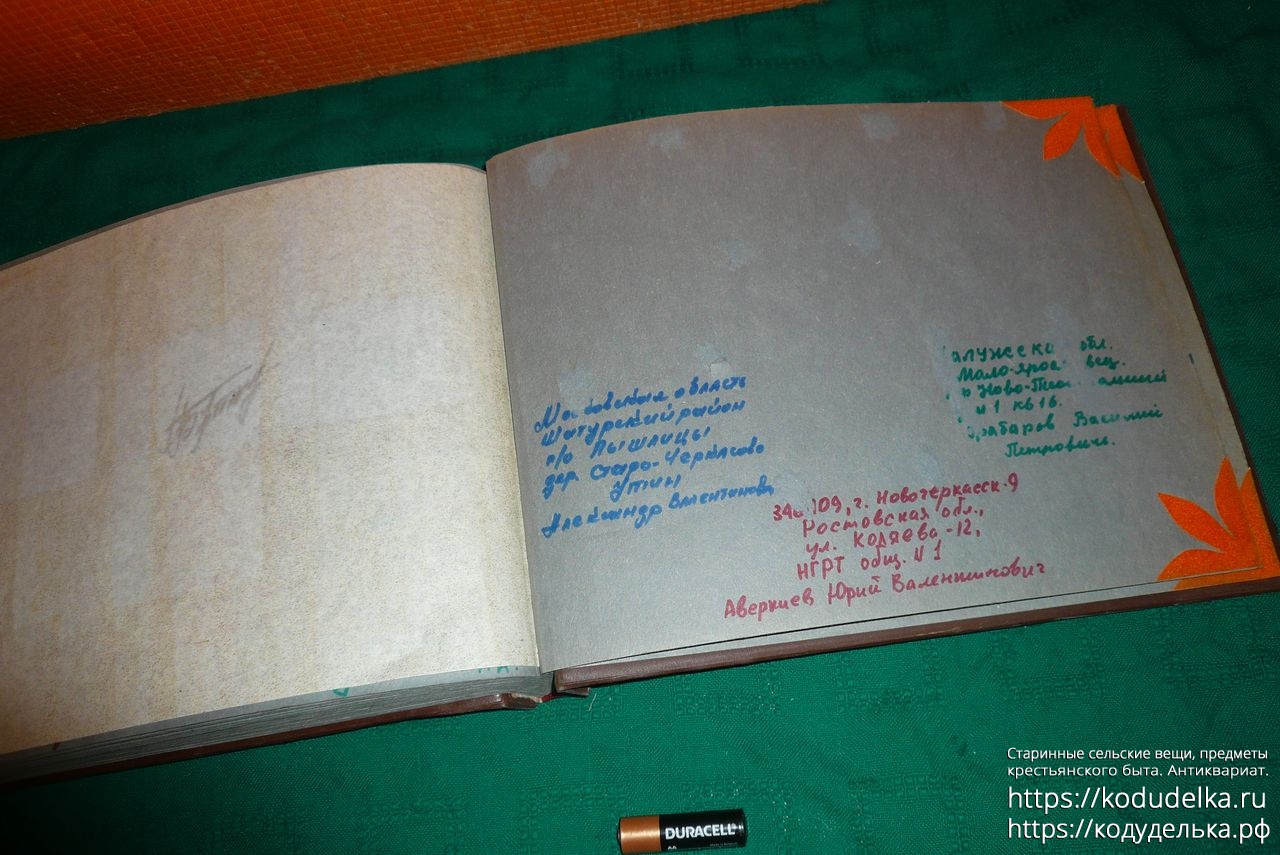 Московская область
Шатурский район
п/о Пышлицы
дер. Старо-Черкасово
Утин
Александр Валентинович
обл.
Мало-Ярос вец.
Ново-
и 1 кв 16.
Василий
Петровичь.
г. Новочеркасск-9
Ростовская обл.,
ул. Кодяева-12,
НГРТ общ. N 1
Аверкиев Юрий Валентинович
DURACELL
AA
Старинные сельские вещи, предметы
крестьянского быта. Антиквариат.
https://kodudelka.ru
https://кодуделька.рф